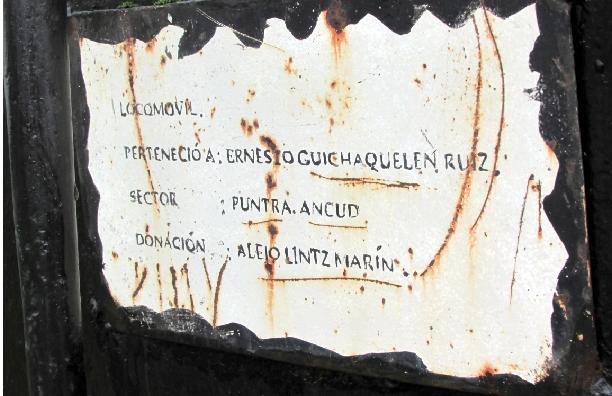 LOCOMOVIL.
PERTENECIÓ A: ERNESTO GUICHAQUELEN RUIZ.
SECTOR : PUNTRA. ANCUD
DONACIÓN : ALEJO LINTZ MARÍN.